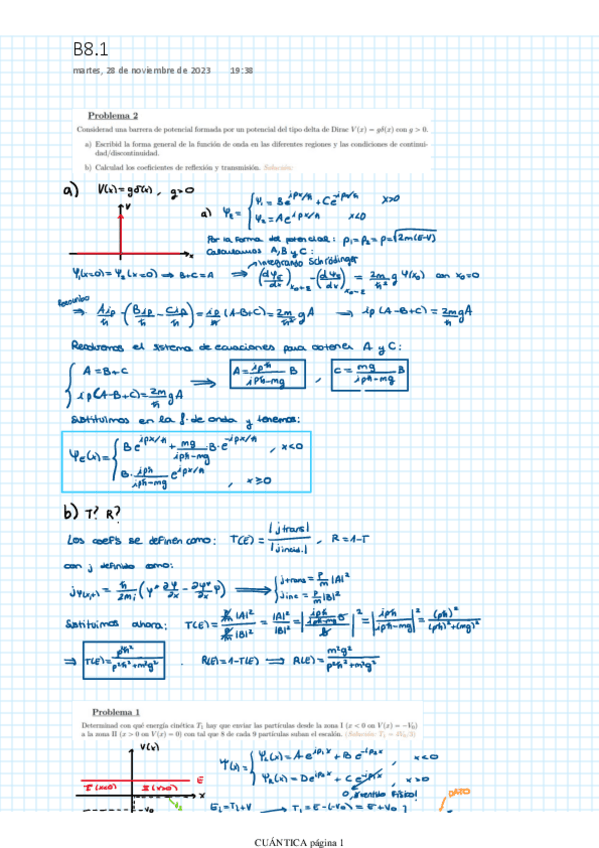 B8.1
martes, 28 de noviembre de 2023 19:38
Problema 2
Considerad una barrera de potencial formada por un potencial del tipo delta de Dirac V(x) = gδ(x) con g > 0.
a) Escribid la forma general de la función de onda en las diferentes regiones y las condiciones de continui-
dad/discontinuidad.
b) Calculad los coeficientes de reflexión y transmisión. Solución:
a) V(x)=gδ(x), g>0
V
x
a) φ_E = { φ₁ = Be^{ipx/ħ} + Ce^{-ipx/ħ} x>0
φ₂ = Ae^{ipx/ħ} x<0
Por la forma del potencial: p₁=p₂=p=√2m(E-V)
Calculamos A, B y C:
integrando Schrödinger
φ₁(x=0) = φ₂(x=0) ⇒ B+C=A ⇒ (dφ_E/dx)_{x₀+ε} - (dφ_E/dx)_{x₀-ε} = 2m/ħ² g φ(x₀) con x₀=0
⇒ Aip/ħ - (Bip/ħ - Cip/ħ) = ip/ħ (A-B+C) = 2m/ħ² gA → ip(A-B+C) = 2m/ħ gA
Resolvemos el sistema de ecuaciones para obtener A y C:
{ A=B+C
ip(A-B+C) = 2m/ħ gA ⇒ A = ipħ/(ipħ-mg) B , C = mg/(ipħ-mg) B
Sustituimos en la f. de onda y tenemos:
φ_E(x) = { Be^{ipx/ħ} + mg/(ipħ-mg) · B · e^{-ipx/ħ} , x<0
B · ipħ/(ipħ-mg) e^{ipx/ħ} , x≥0
b) T? R?
Los coefs se definen como: T(E) = |jtrans|/|jincid.| , R=1-T
con j definido como:
j_{φ(x,t)} = ħ/2mi (φ* ∂φ/∂x - ∂φ*/∂x φ) ⇒ { jtrans = p/m |A|²
jinc = p/m |B|²
Sustituimos ahora: T(E) = p/m |A|² / p/m |B|² = |A|²/|B|² = |ipħ/(ipħ-mg) B / B|² = |ipħ/(ipħ-mg)|² = (pħ)²/((pħ)²+(mg)²)
⇒ T(E) = p²ħ²/(p²ħ²+m²g²) . R(E)=1-T(E) ⇒ R(E) = m²g²/(p²ħ²+m²g²)
Problema 1
Determinad con qué energía cinética T₁ hay que enviar las partículas desde la zona I (x < 0 on V(x) = −V₀)
a la zona II (x > 0 on V(x) = 0) con tal que 8 de cada 9 partículas suban el escalón. (Solución: T₁ = 4V₀/3)
V(x)
E
I (x<0) II (x>0)
x
-V₀
φ(x) = { φ_I(x) = Ae^{ip₁x} + Be^{-ip₁x} , x<0
φ_II(x) = De^{ip₂x} + Ce^{-ip₂x} , x>0
0, sentido físico!
DATO
E₁=T₁+V → T₁=E-(-V₀) = E+V₀ ?
CUÁNTICA página 1